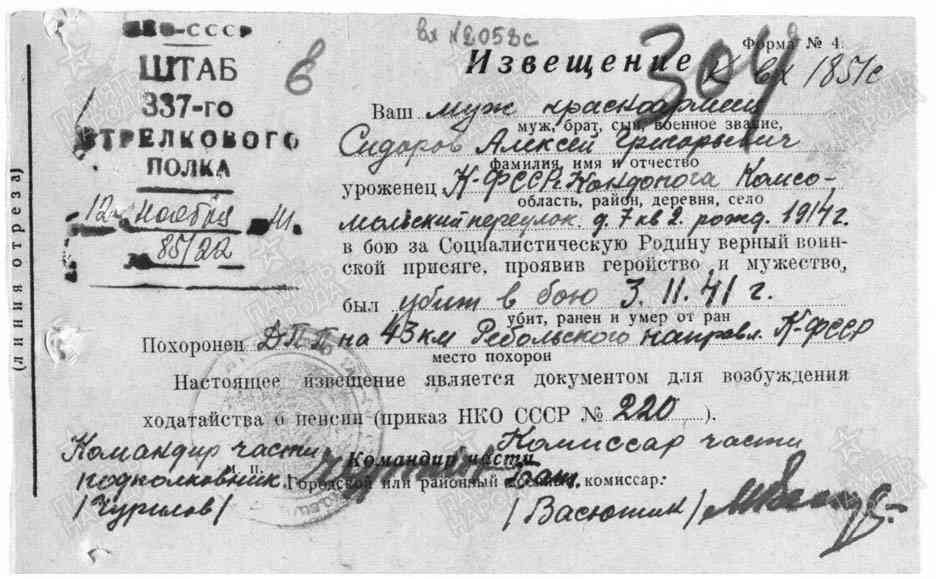 вх №2058с
НКО-СССР
ШТАБ
337-го
СТРЕЛКОВОГО
ПОЛКА
12 ноября 41.
85/22
(линия отреза)
Форма № 4.
304
Извещение
вх 1851с
Ваш муж красноармеец
муж, брат, сын, военное звание,
Сидоров Алексей Григорьевич
фамилия, имя и отчество
уроженец К-ФССР г. Кондопога Комсо-
область, район, деревня, село
мольский переулок д. 7 кв 2. рожд. 1914 г.
в бою за Социалистическую Родину верный воин-
ской присяге, проявив геройство и мужество,
был убит в бою 3.11.41 г.
убит, ранен и умер от ран
Похоронен ДПП на 43 км Ребольского направл. К-ФССР
место похорон
Настоящее извещение является документом для возбуждения
ходатайства о пенсии (приказ НКО СССР № 220).
Командир части Командир части Комиссар части
подполковник М. П. Городской или районный комиссар:
/Чурилов/ /Васютик/